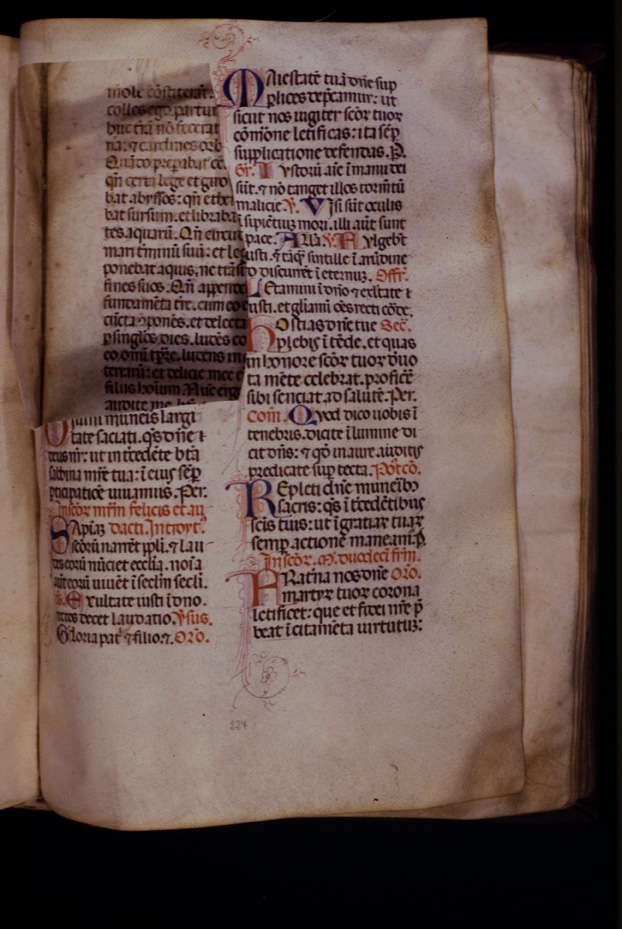 mole cōstiterāt.
colles ego partur
bat t̄rā nō fecerat
na: ⁊ cardines orb
Qn̄do prepabat ce
qn̄ certa lege et giro
bat abyssos: qn̄ ethe
bat sursum. et libraba
tes aquarū. Qn̄ circu
mari t̄minū suū: et le
ponebat aquis, ne trāsi
fines suos. Qn̄ appende
fundamēta t̄re. cum eo
cūcta ꝯponēs. et delecta
ꝑ singlos dies. ludēs co
co om̄i tꝑre. ludens in
terrarū: et delicie mee c
filiis hoīum. Nūc erg
audite me
muneis largi
tate saciati. qs dn̄e ⁊
deus nr̄: ut in t̄cedēte bt̄a
sabina mr̄e tua: ī eius sēꝑ
ꝑticipatiōe uiuamus. Per.
In scōr mr̄m felicis et au
Sapiaȝ dacti. Introyt.
scōrū narrēt ppli. ⁊ lau
des eorū nūciet ecclīa. noīa
aūt eorū uiuēt ī seclm̄ secli.
ps. Exultate iusti ī dno.
rectos decet laudatio. Ꝟsus.
Gloria pat̄ ⁊ filio. Oro.
Maiestatē tuā dn̄e sup
plices dep̄camur: ut
sicut nos iugiter scōr tuor
cōm̄one letificas: ita sēꝑ
supplicatione defendas. P.
Gr. Iustorū aīe ī manu dei
sūt. ⁊ nō tanget illos torm̄tū
malicie ꝟ. Visi sūt oculis
īsipiētiuȝ mori. illi aūt sunt
ī pace. Allā ꝟ. Fulgebt̄
iusti. ⁊ tāqȝ sintille ī arūdine
to discurrēt ī eternuȝ. Offr.
Letamini ī dn̄o ⁊ exltate ⁊
iusti. et gliamī oēs recti cōrde.
Hostias dn̄e tue Sec̄.
plebis ī tēde. et quas
in honore scōr tuor duo
ta mēte celebrat. proficē
sibi senciat ad salutē. Per.
Com̄. Quod dico uobis ī
tenebris. dicite ī lumine di
cit dn̄s: ⁊ qd̄ in aure auditis
predicate sup tecta. Postco.
Repleti dn̄e muneibȝ
sacris: qs ī t̄cedētibus
scis tuis: ut ī gratiar tuar
semꝑ actione maneam. P
In scōr. M. duodeci fr̄m.
Fratn̄a nos dn̄e Oro.
martyr tuor corona
letificet: que et fidei nr̄e p̄
beat ī citamēta uirtutuȝ:
224